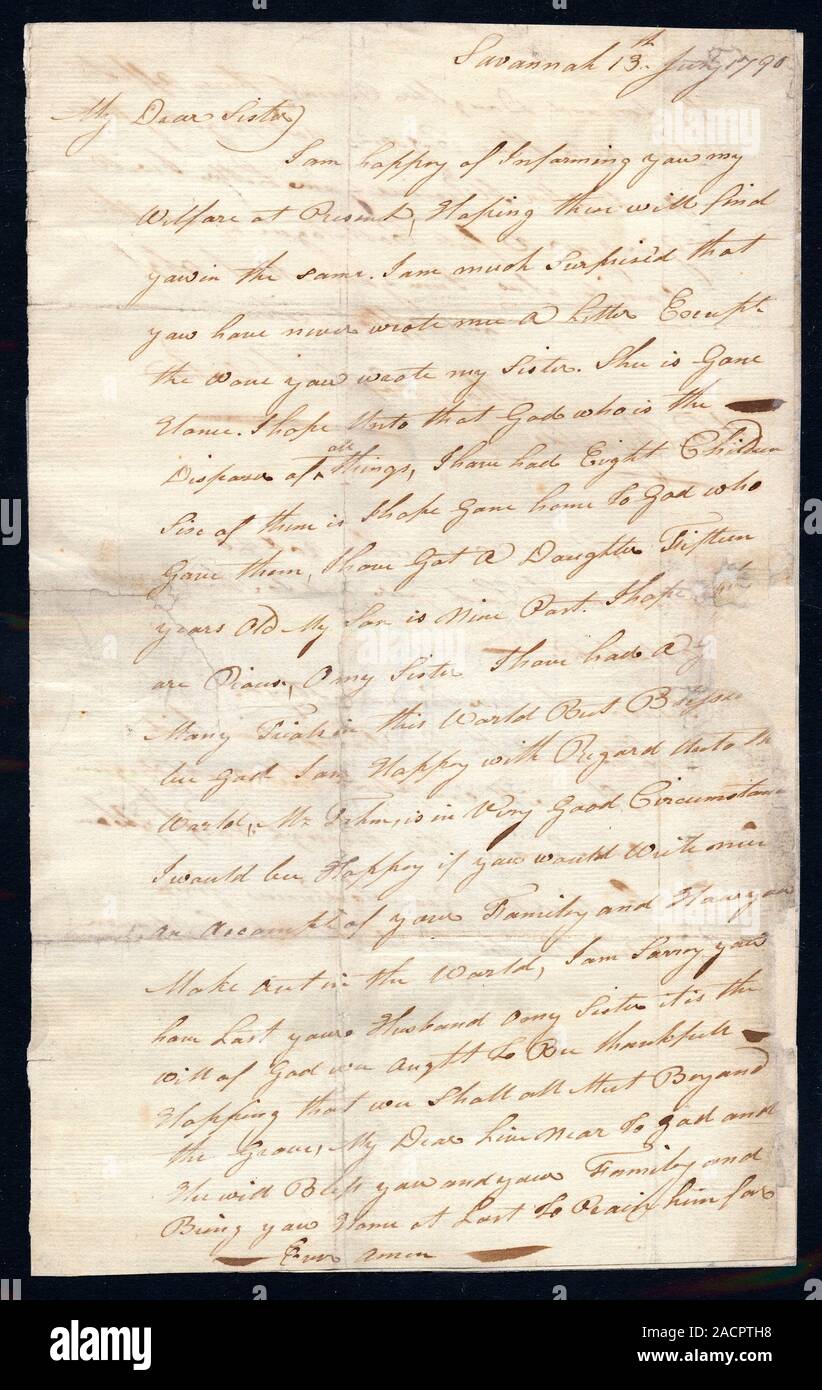 Savannah 13th 1790
My Dear Sister
I am happey of Informing yaw my
Wilfare at Present, Hoping these will find
yaw in the same. I am much Surprised that
yaw have never wrote mee A Letter Except
the wone yaw wrote my Sister. She is Gone
Home. I hope Unto that God who is the
Disposer of all things, I have had Eight Children
Six of them is I hope Gone home To God who
Gave them, I have Got A Daughter Fifteen
years Old My Son is Nine Past. I hope
are Pious, O my Sister I have had A
Many Trials in this World But
bee God I am Happey with Regard Unto
World, Mr is in Very Good Circumstance
I would bee Happey if yaw would Write mee
an Accompt of your Familey and How yaw
Make Out in the World, I am Sorrey yaw
have Lost your Husband O my Sister it is the
will of God wee Aught To Bee thankfull
Happing that wee Shall all Meet Beyand
the Grave, My Dear Live Near To God and
He will Bless yaw and yaur Familey and
Bring yaw Home at Last To Praise him for
Ever Amen
alamy
Image ID: 2ACPTH8
www.alamy.com